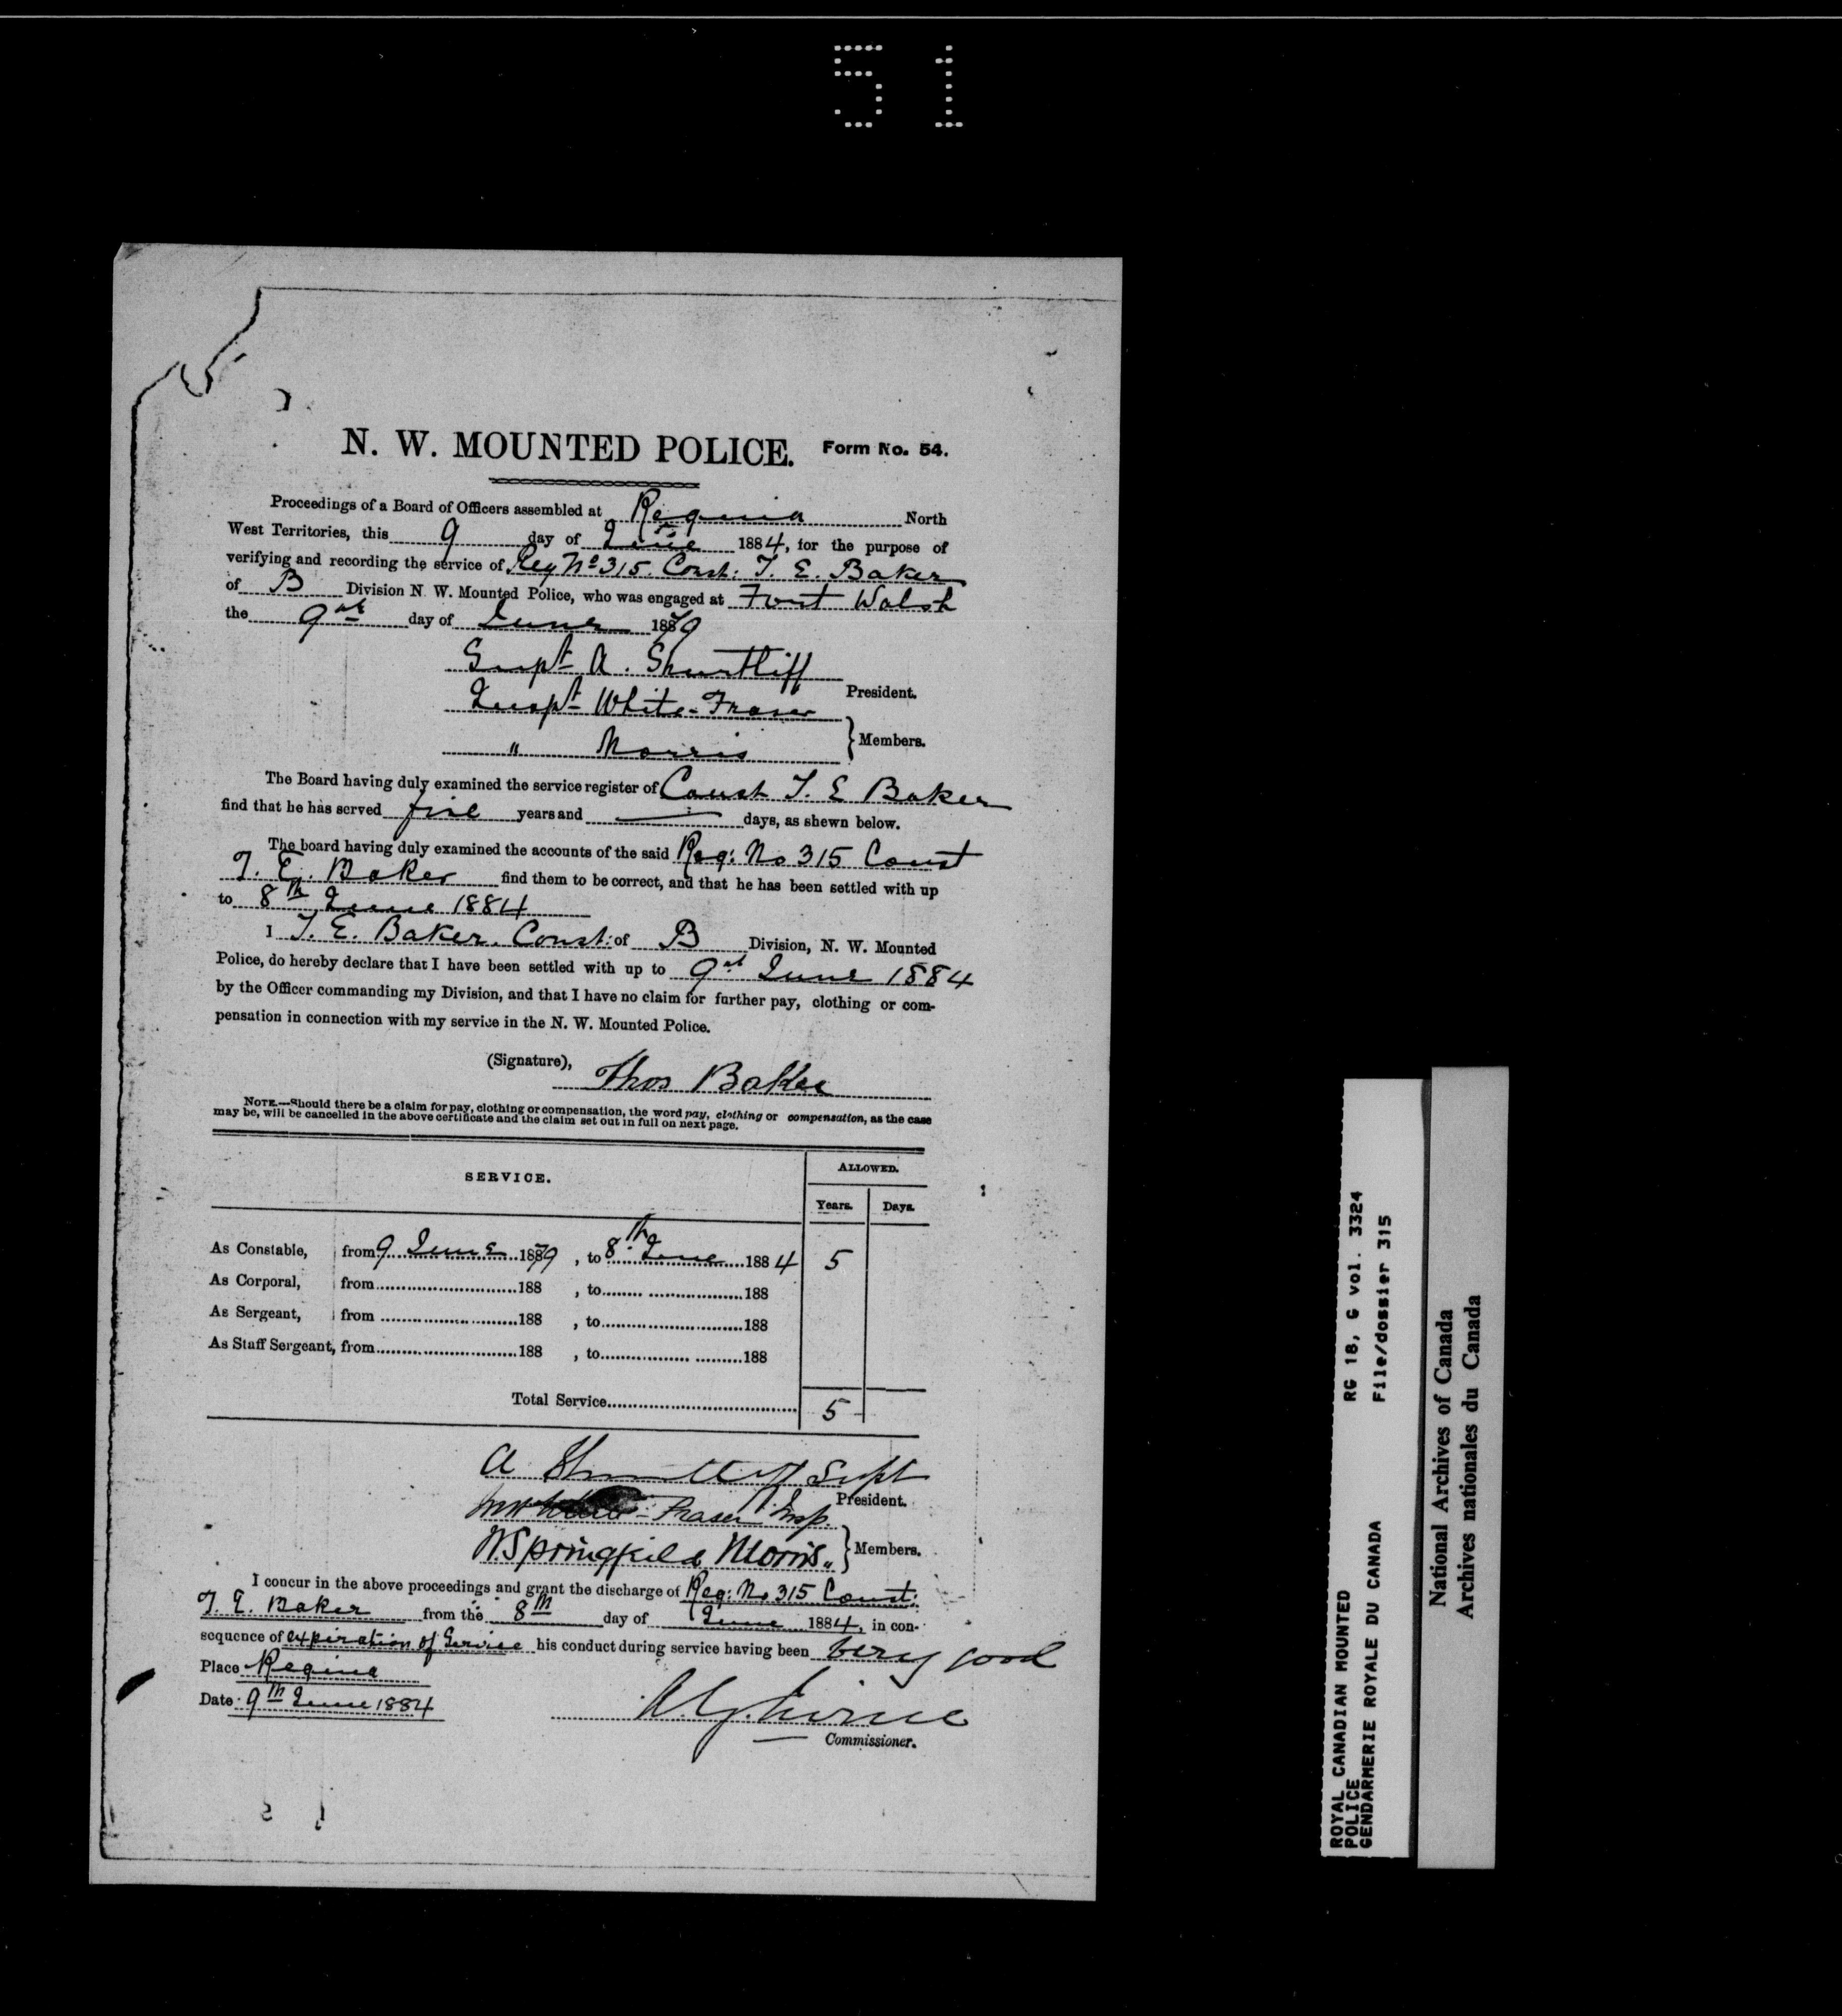 51
N. W. MOUNTED POLICE. Form No. 54.
Proceedings of a Board of Officers assembled at Regina North
West Territories, this 9 day of June 1884, for the purpose of
verifying and recording the service of Reg No 315. Const: T. E. Baker
of B Division N. W. Mounted Police, who was engaged at Fort Walsh
the 9th day of June 1879
Supt A. Shurtliff
President.
Inspt White-Fraser
" Morris
Members.
The Board having duly examined the service register of Const T. E Baker
find that he has served five years and — days, as shewn below.
The board having duly examined the accounts of the said Reg: No 315 Const
T. E. Baker find them to be correct, and that he has been settled with up
to 8th June 1884
I T. E. Baker. Const: of B Division, N. W. Mounted
Police, do hereby declare that I have been settled with up to 9th June 1884
by the Officer commanding my Division, and that I have no claim for further pay, clothing or com-
pensation in connection with my service in the N. W. Mounted Police.
(Signature), Thos Baker
NOTE.—Should there be a claim for pay, clothing or compensation, the word pay, clothing or compensation, as the case
may be, will be cancelled in the above certificate and the claim set out in full on next page.
SERVICE. ALLOWED.
Years. Days.
As Constable, from 9 June 1879, to 8th June 1884 5
As Corporal, from 188 , to 188
As Sergeant, from 188 , to 188
As Staff Sergeant, from 188 , to 188
Total Service 5
A Shurtliff Supt
President.
White-Fraser Insp.
W. Springfield Morris "
Members.
I concur in the above proceedings and grant the discharge of Reg: No 315 Const:
T. E. Baker from the 8th day of June 1884, in con-
sequence of expiration of Service his conduct during service having been very good
Place Regina
Date 9th June 1884
A. G. Irvine
Commissioner.
ROYAL CANADIAN MOUNTED RG 18, G vol. 3324
POLICE
GENDARMERIE ROYALE DU CANADA File/dossier 315
National Archives of Canada
Archives nationales du Canada